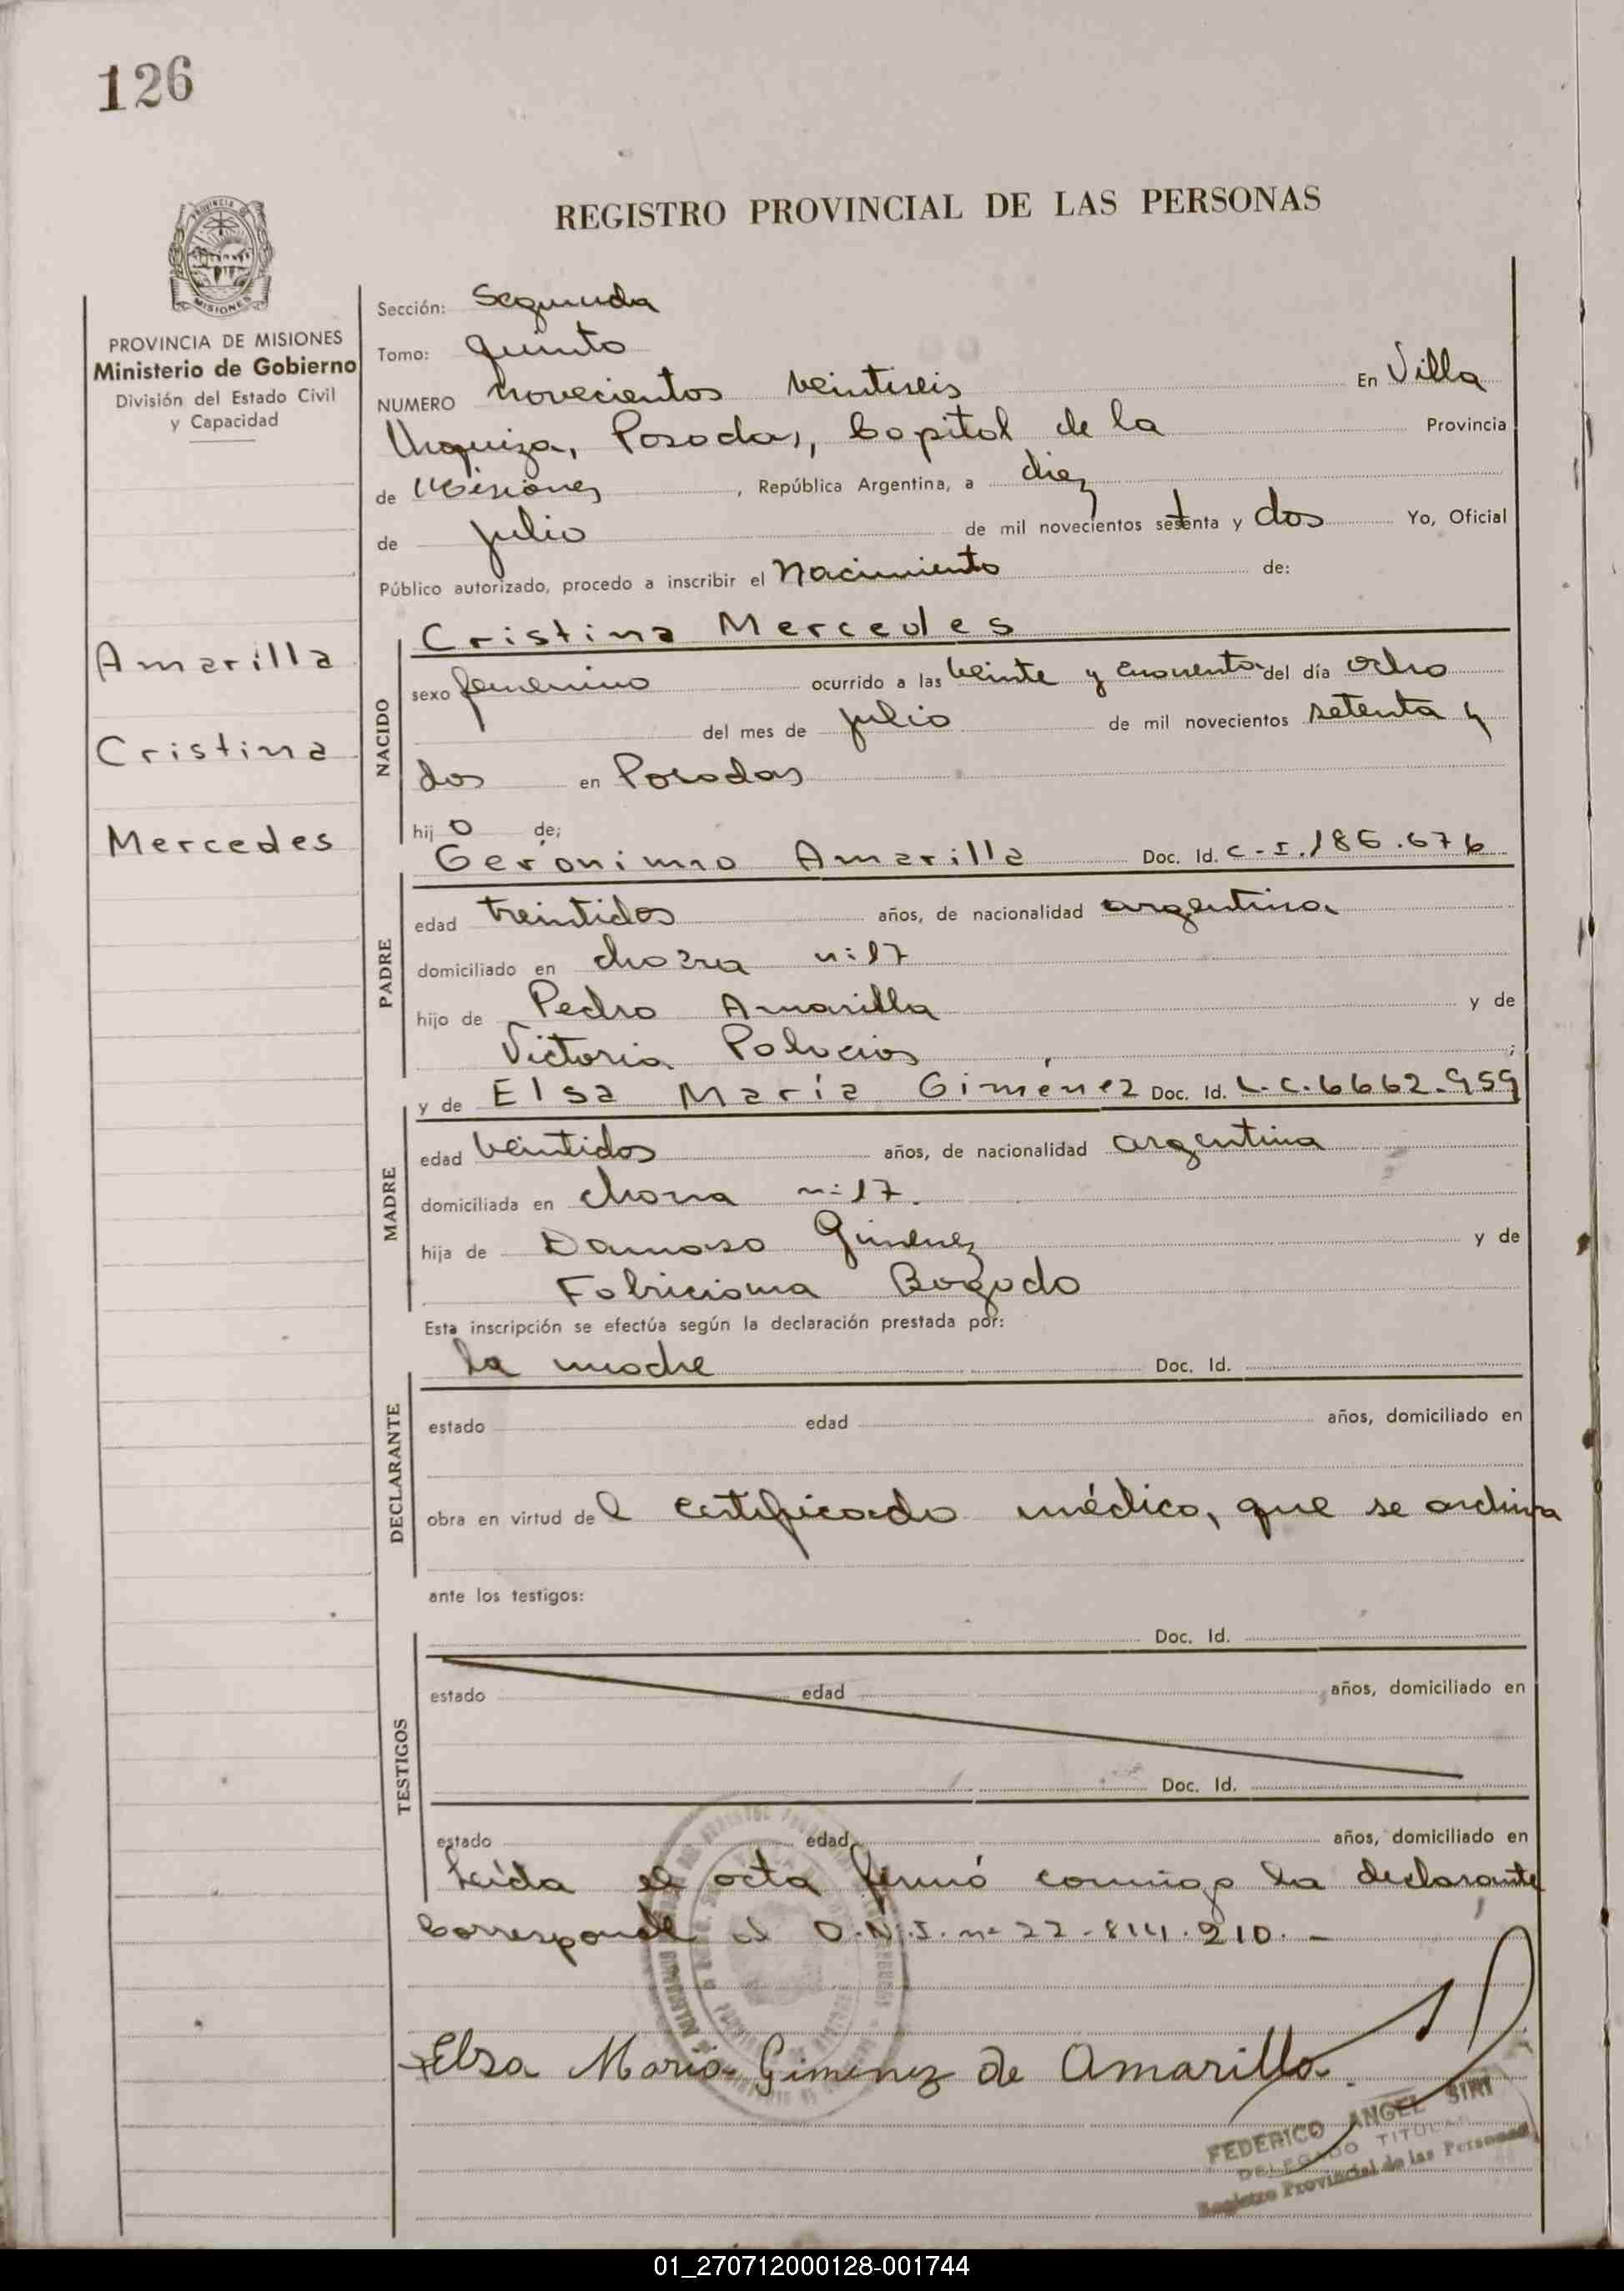 126
REGISTRO PROVINCIAL DE LAS PERSONAS
PROVINCIA DE MISIONES
Ministerio de Gobierno
División del Estado Civil
y Capacidad
Amarilla
Cristina
Mercedes
Sección: Segunda
Tomo: quinto
NUMERO novecientos veintiseis En Villa
Urquiza, Posadas, Capital de la Provincia
de Misiones, República Argentina, a diez
de julio de mil novecientos setenta y dos Yo, Oficial
Público autorizado, procedo a inscribir el Nacimiento de:
NACIDO
Cristina Mercedes
sexo femenino ocurrido a las veinte y cuarenta del día ocho
del mes de julio de mil novecientos setenta y
dos en Posadas
hij o de;
PADRE
Gerónimo Amarilla Doc. Id. C.I. 186.676
edad treintidos años, de nacionalidad argentina
domiciliado en chacra n: 17
hijo de Pedro Amarilla y de
Victoria Palacios;
MADRE
y de Elsa María Gimenez Doc. Id. L.C. 6662.959
edad veintidos años, de nacionalidad argentina
domiciliada en chacra n: 17.
hija de Damaso Gimenez y de
Fabriciana Bogado
Esta inscripción se efectúa según la declaración prestada por:
DECLARANTE
la madre Doc. Id.
estado edad años, domiciliado en
obra en virtud del certificado médico, que se archiva
ante los testigos:
TESTIGOS
Doc. Id.
estado edad años, domiciliado en
Doc. Id.
estado edad años, domiciliado en
Leída el acta firmó conmigo la declarante
Corresponde al D.N.I. nº 22.814.210. -
Elsa María Gimenez de Amarilla.
FEDERICO ANGEL SIRI
DELEGADO TITULAR
Registro Provincial de las Personas
01_270712000128-001744